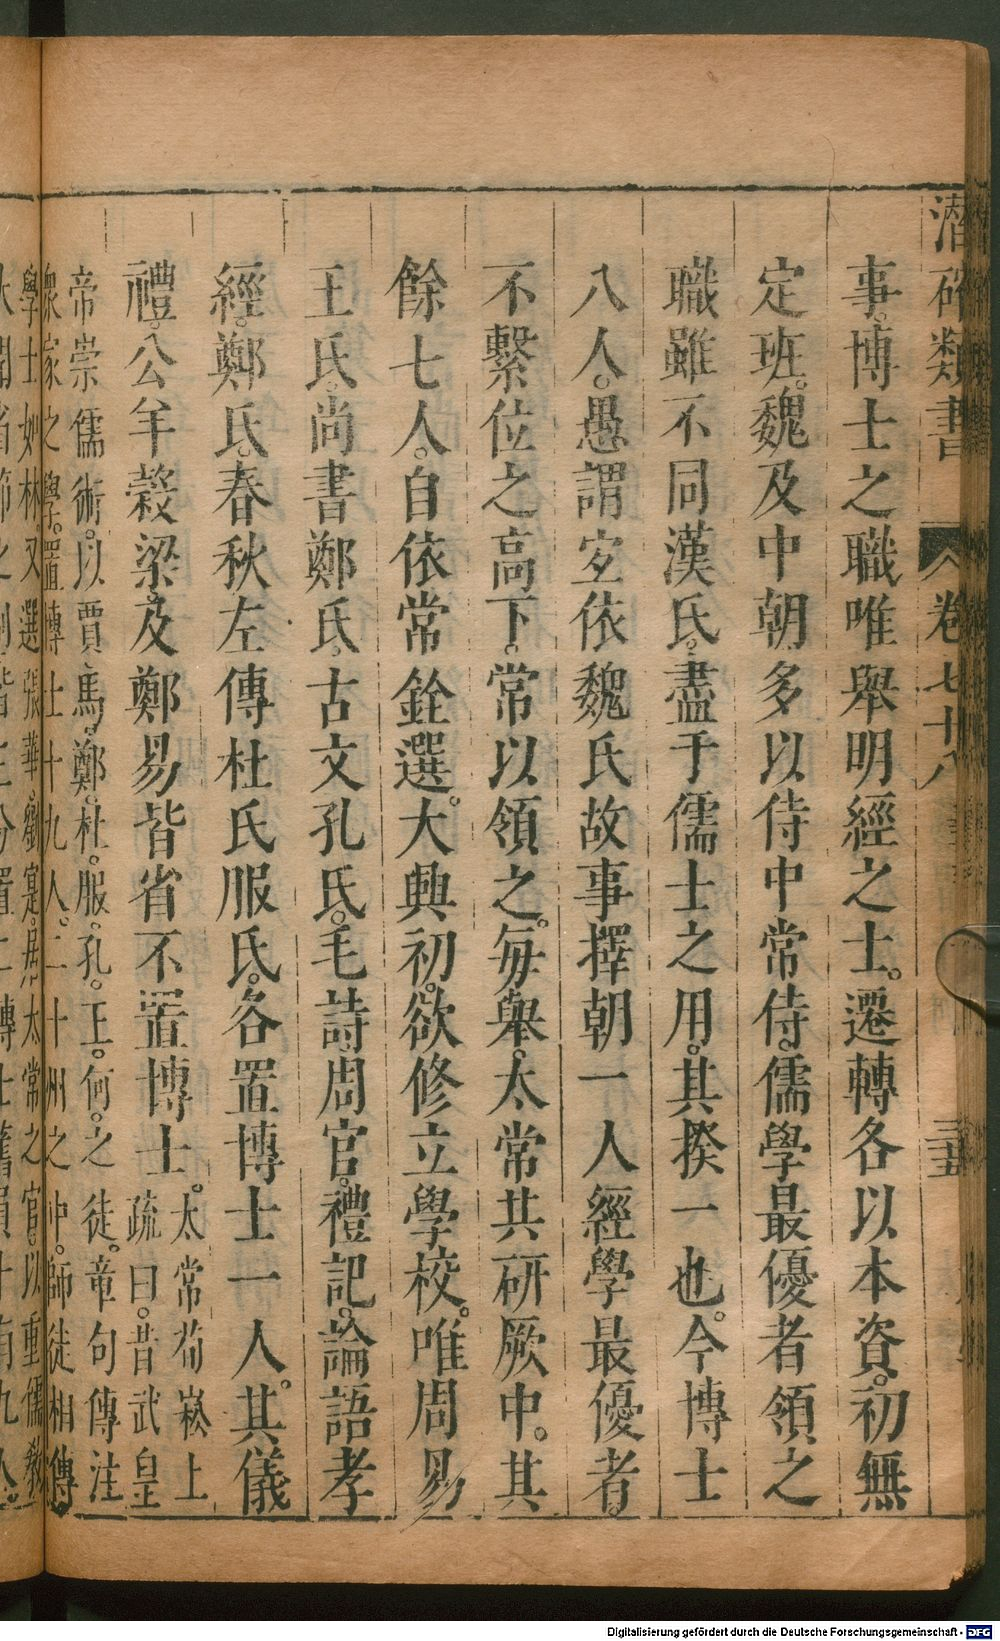 潜確類書
卷七十八
三十五
事。博士之職唯舉明經之士。遷轉各以本資。初無
定班。魏及中朝多以侍中常侍。儒學最優者領之
職雖不同漢氏。盡于儒士之用。其揆一也。今博士
八人。愚謂宜依魏氏故事擇朝一人經學最優者。
不繫位之高下。常以領之。每舉。太常共研厥中。其
餘七人。自依常銓選。大興初。欲修立學校。唯周易
王氏。尚書鄭氏。古文孔氏。毛詩周官。禮記。論語孝
經。鄭氏。春秋左傳杜氏服氏。各置博士一人。其儀
禮。公羊穀梁。及鄭易皆省不置博士。太常荀崧上
疏曰。昔武皇
帝崇儒術。以賈馬。鄭。杜。服。孔。王。何。之徒。章句傳注
衆家之學。置博士十九人。二十州之中。師徒相傳
學士如林。又選張華。劉寔。居太常之官。以重儒敎
Digitalisierung gefördert durch die Deutsche Forschungsgemeinschaft - DFG